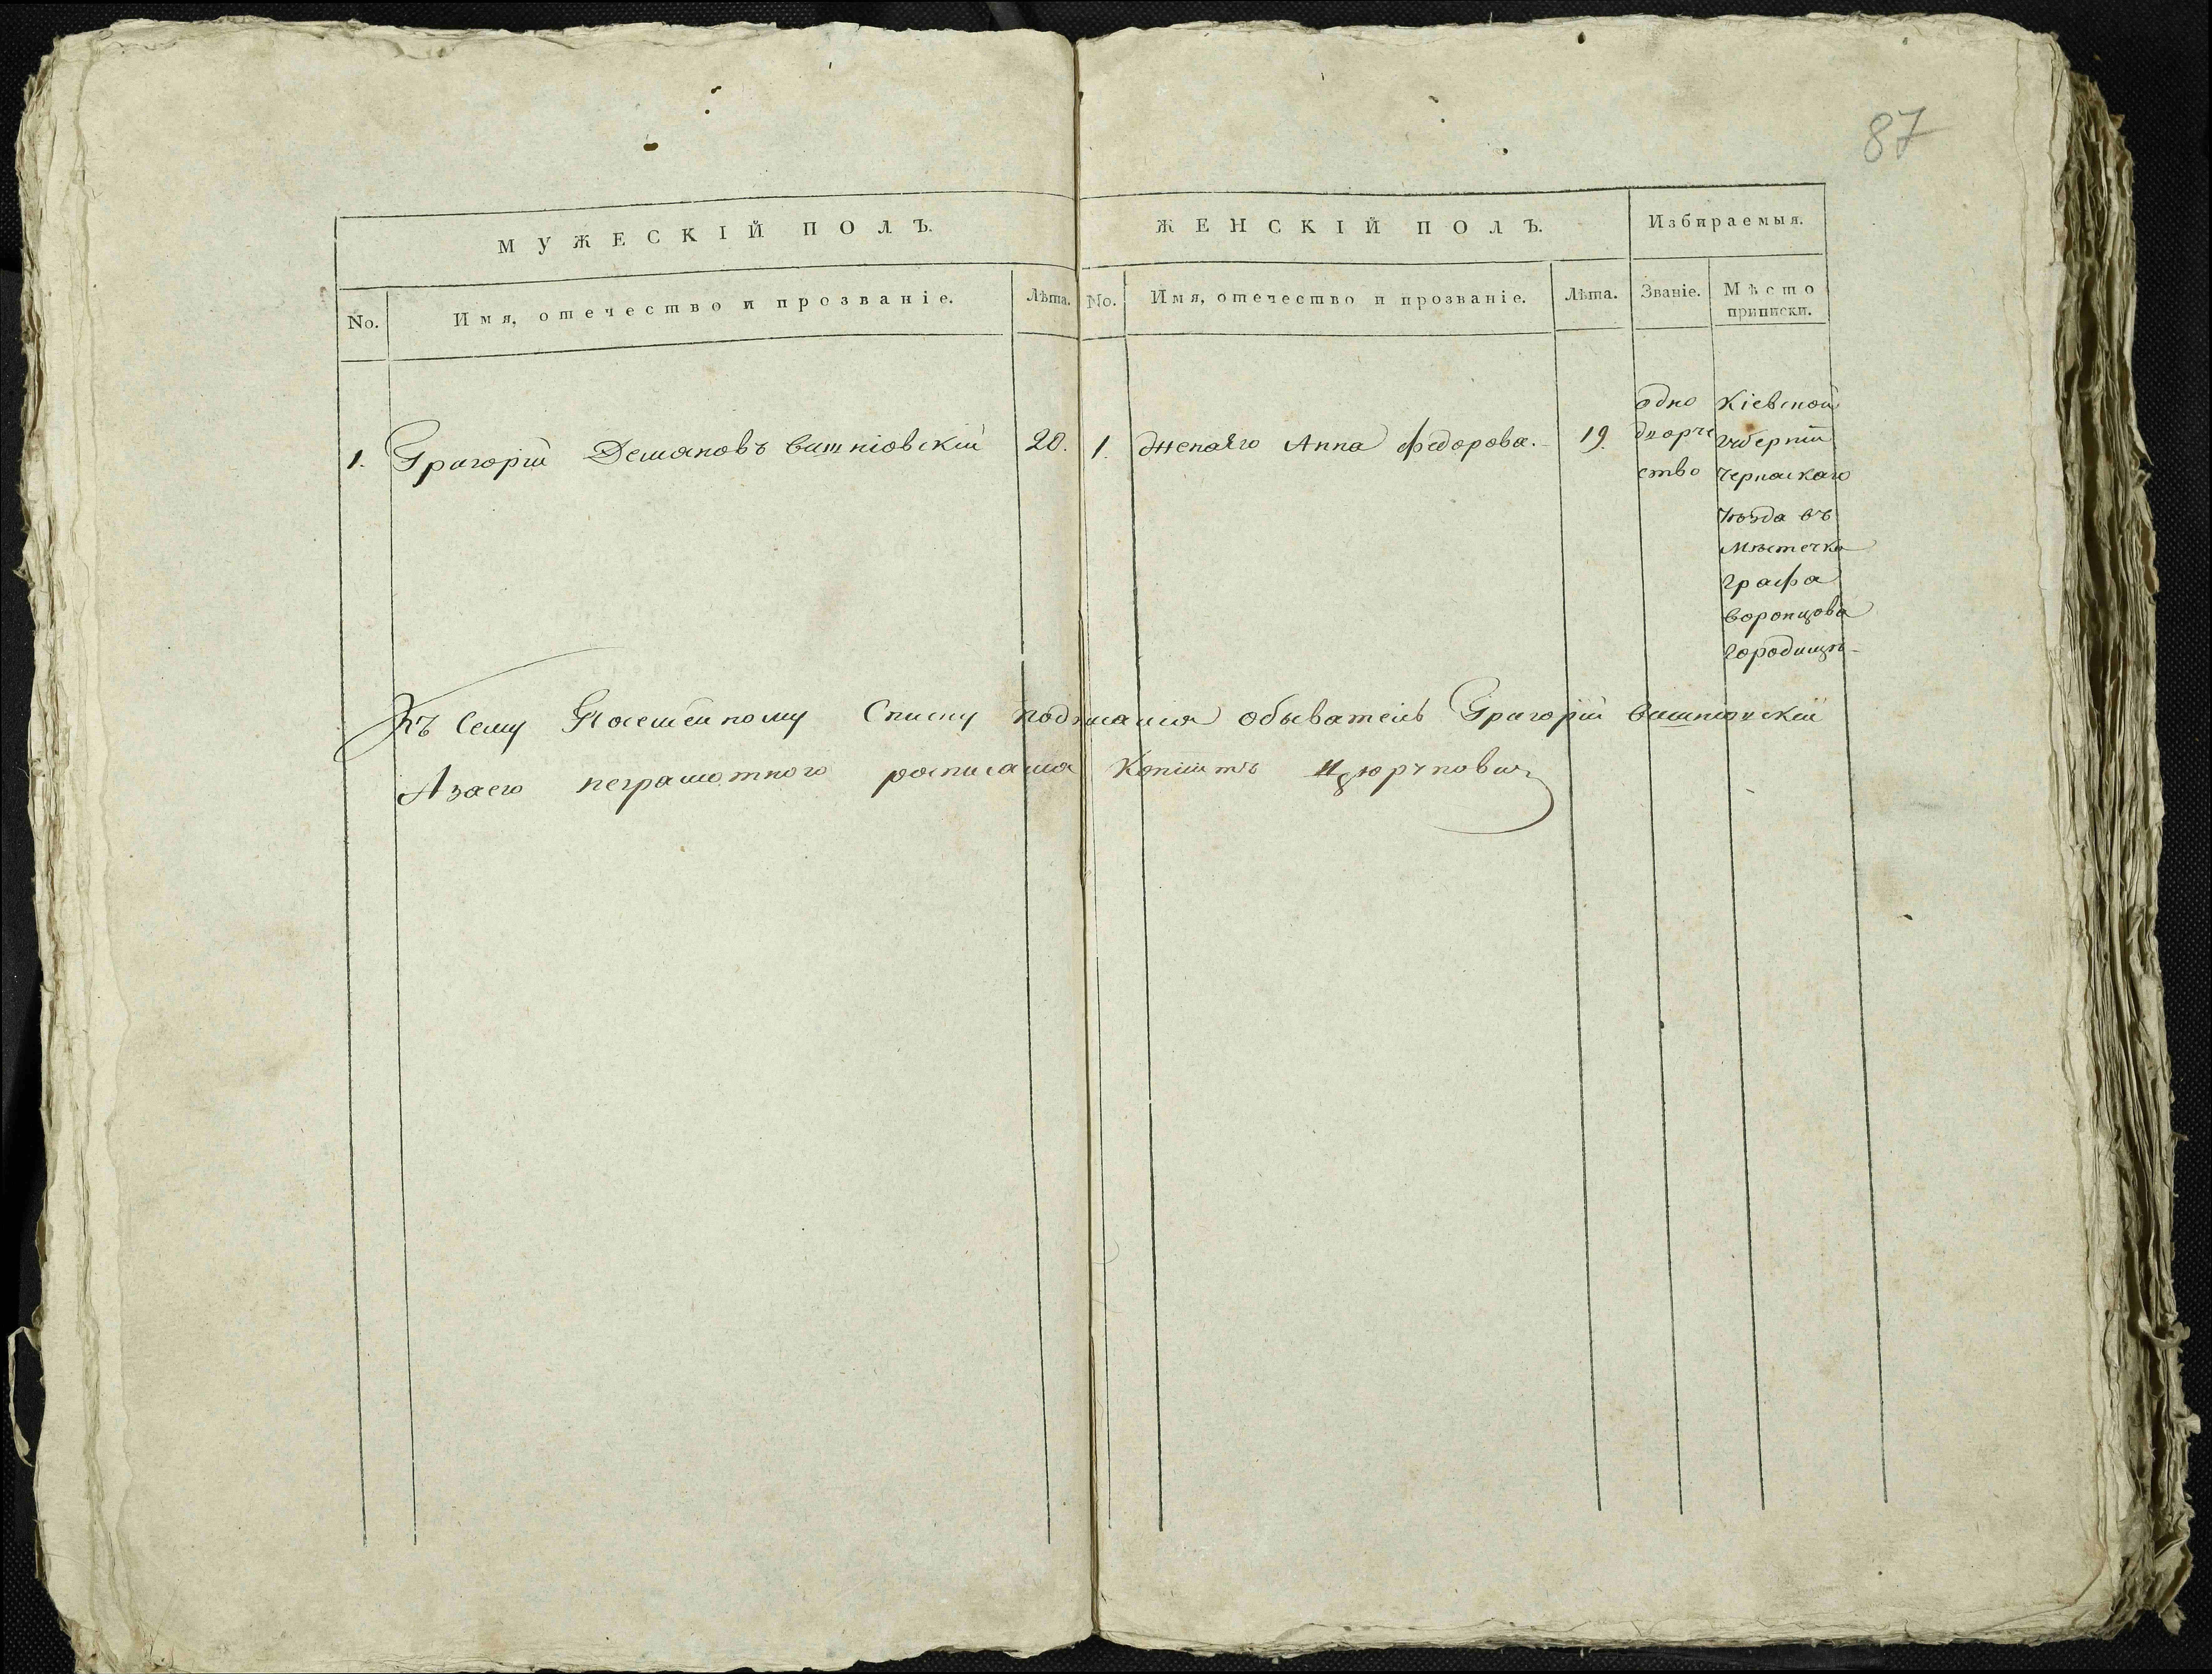 87
МУЖЕСКІЙ ПОЛЪ.
ЖЕНСКІЙ ПОЛЪ.
Избираемыя.
No.
Имя, отечество и прозваніе.
Лѣта.
No.
Имя, отечество и прозваніе.
Лѣта.
Званіе.
Мѣсто
приписки.
1.
Григорій Демяновъ Вишніовскій
20.
1.
Жена Его Анна Федорова.
19.
одно
дворче
ство
Кіевской
губерніи
Черкаскаго
Повѣта въ
Мѣстечка
графа
Воронцова
Городищѣ
Къ Сему Посемейному Списку подписался обыватель Григорій Вишніовскій
А за его неграмотного росписался Копіистъ